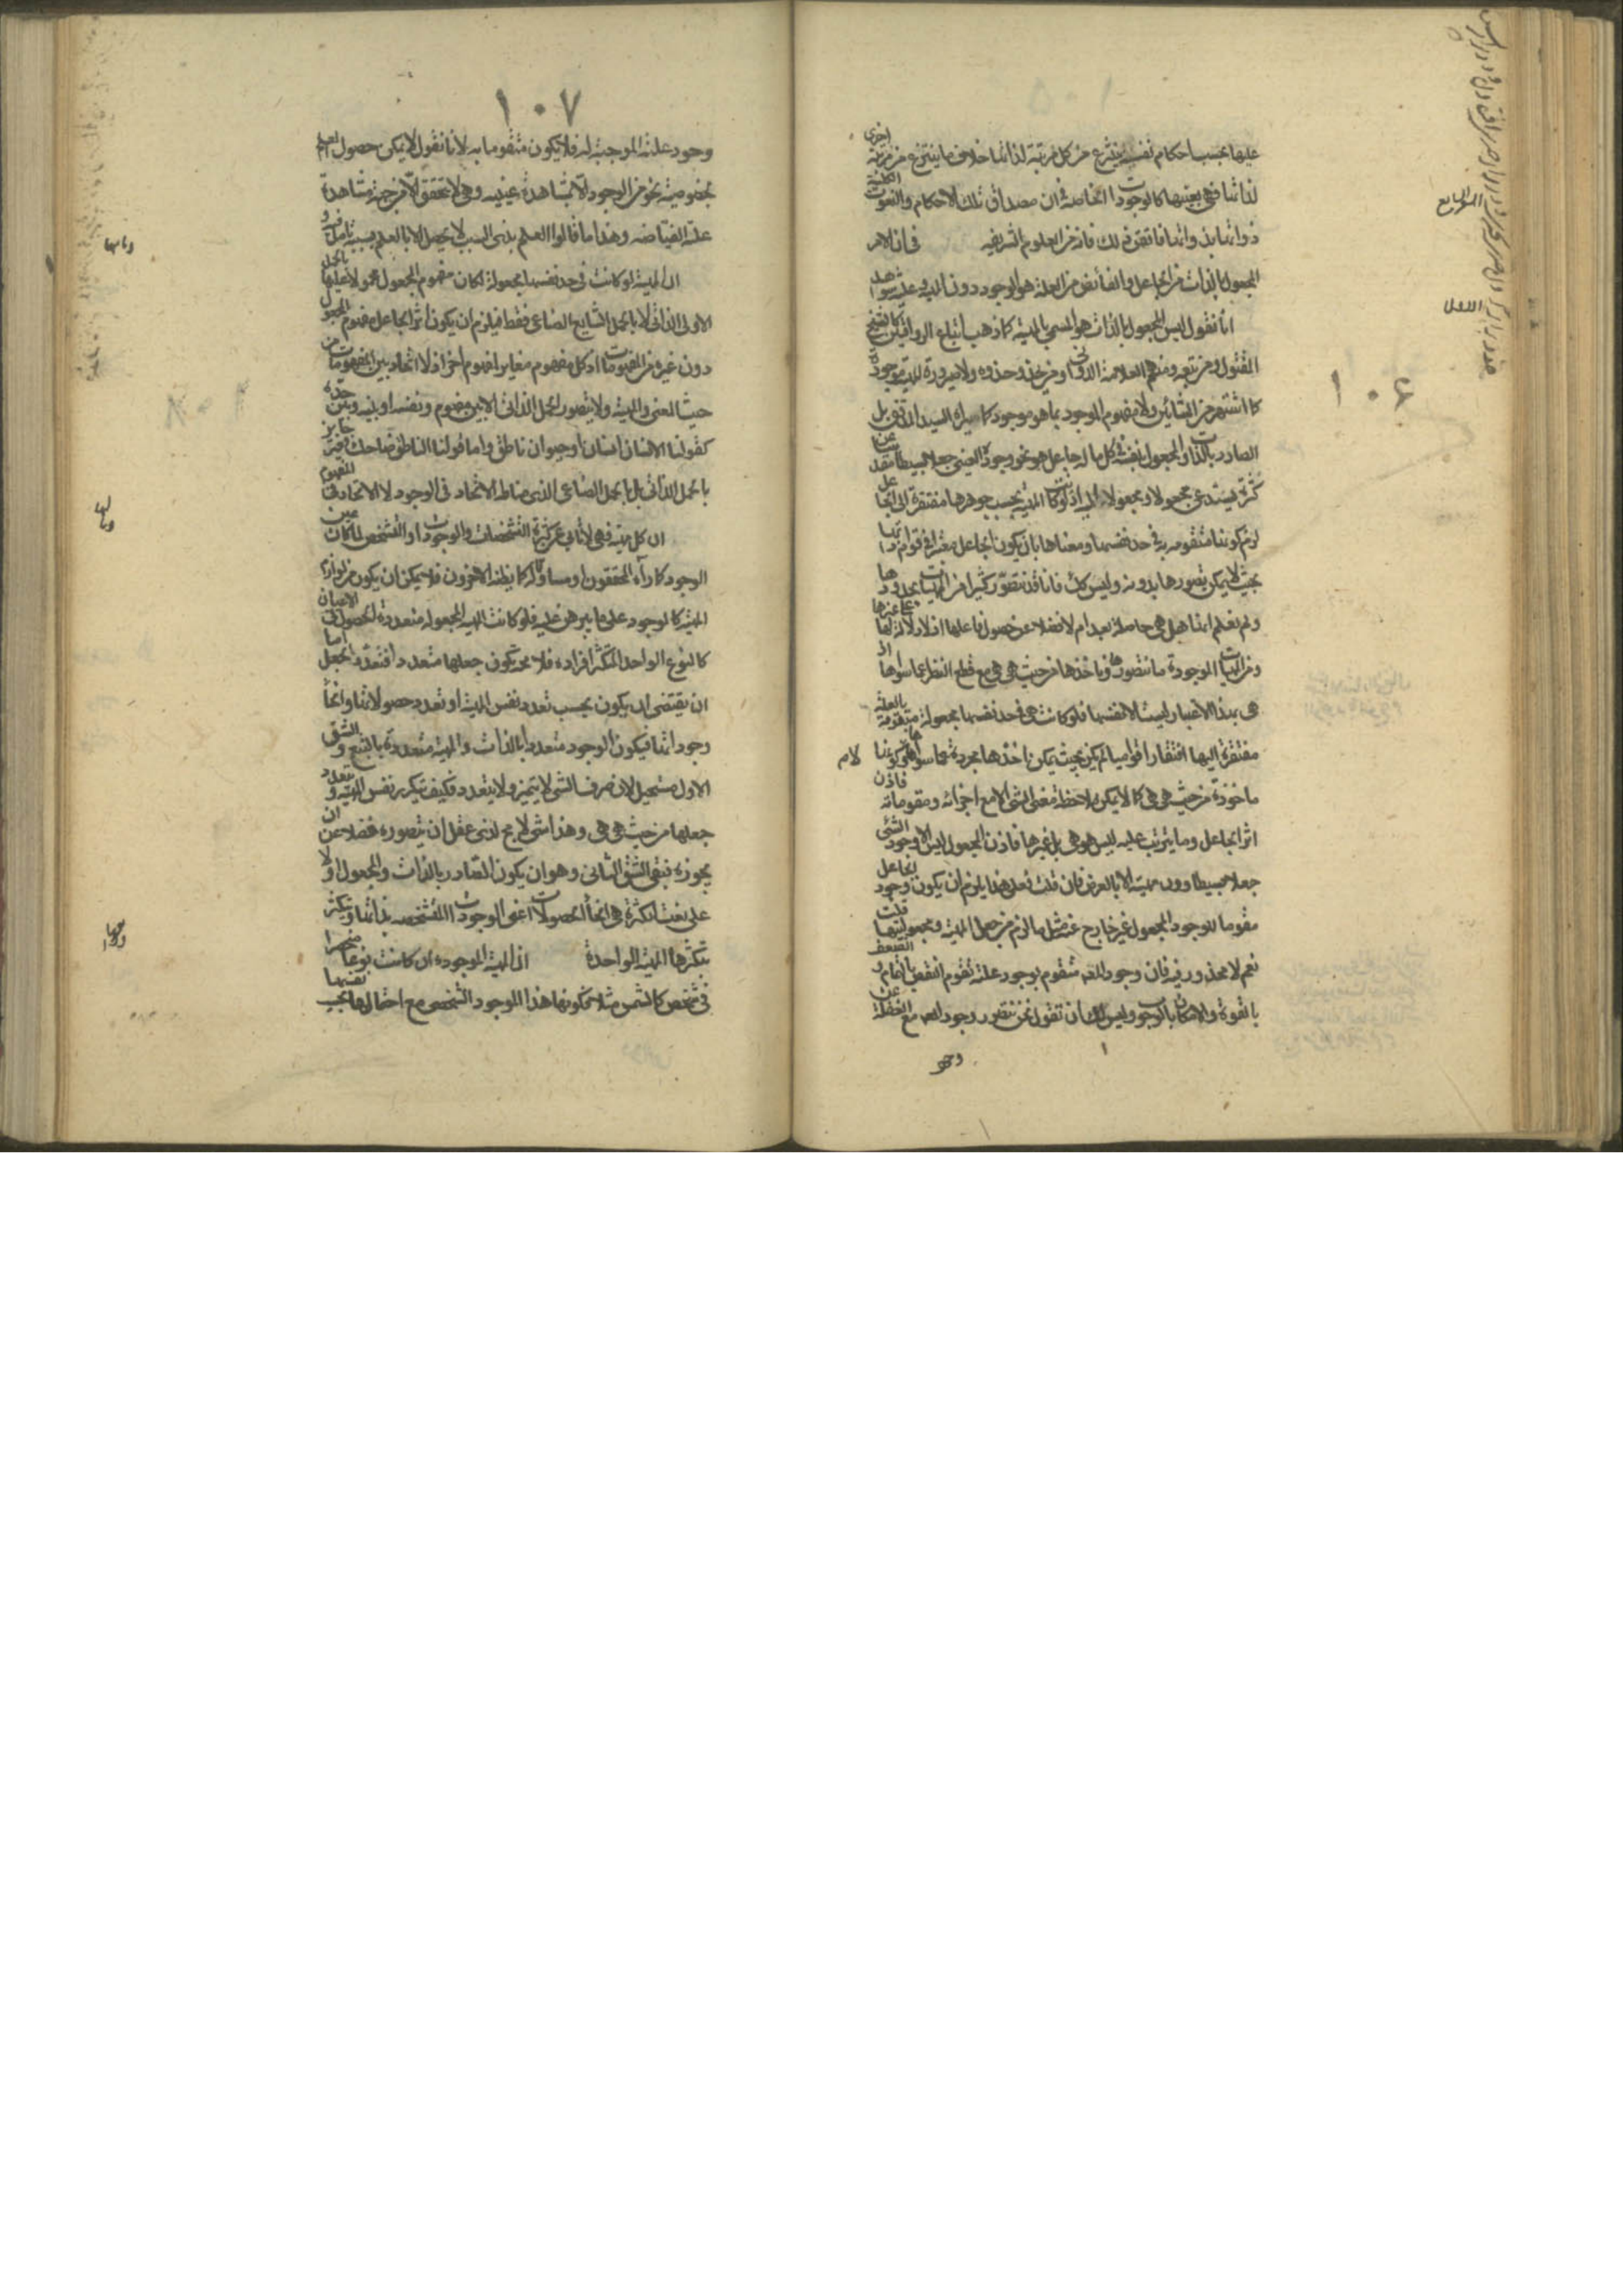 ١٠٦
عليها بحسب احكام نفسية ينتزع من كل مرتبة لذاتها خلاف ما ينتزع من مرتبة اخرى
لذاتها فهى بعينها كالوجودات الخاصة فى ان مصداق تلك الاحكام والنعوت الكلية
ذواتها بذواتها فاتقن ذلك فانه من العلوم الشريفة فى ان الامر
المجعول بالذات من الجاعل والفائض من العلة هو الوجود دون المهية وعليه شواهد
انا نقول ليس المجعول بالذات هو المسمى بالمهية كما ذهب اتباع الرواقيين كالشيخ
المقتول ومن تبعه ومنهم العلامة الدوانى ومن يحذو حذوه ولا صيرورة المهية موجودة
كما اشتهر من المشائين ولا مفهوم الموجود بما هو موجود كما يراه السيد المدقق بل
الصادر بالذات والمجعول بنفسه فى كل ما له جاعل هو نحو وجوده العينى جعلا بسيطا مقدسا عن
كثرة تستدعى مجعولا ومجعولا اليه اذ لو كانت المهية بحسب جوهرها مفتقرة الى الجاعل
لزم كونها متقومة به فى حد نفسها ومعناها بان يكون الجاعل معتبرا فى قوام ذاتها
بحيث لا يمكن تصورها بدونه وليس كذلك فانا قد نتصور كثيرا من المهيات بحدودها
ولم نعلم انها هل هى حاصلة بعد ام لا فضلا عن حصول فاعلها اذ لا دلالة لها على غيرها
ومن المهيات الموجودة ما نتصورها وناخذها من حيث هى هى مع قطع النظر عما سواها اذ
هى بهذا الاعتبار ليست الا نفسها فلو كانت هى فى حد نفسها مجعولة متقومة بالعلة
مفتقرة اليها افتقارا قواميا لم يكن بحيث يمكن اخذها مجردة عما سواها ولا كونها
ماخوذة من حيث هى هى كما لا يمكن ملاحظة معنى الشئ الا مع اجزائه ومقوماته فاذن
اثر الجاعل وما يترتب عليه ليس هو هى بل غيرها فاذن المجعول ليس الا وجود الشئ
جعلا بسيطا دون مهيته الا بالعرض فان قلت فعلى هذا يلزم ان يكون وجود الجاعل
مقوما لوجود المجعول غير خارج عنه مثل ما لزم من جعل المهية ومجعوليتها قلت
نعم لا محذور فيه فان وجود المعلول متقوم بوجود علته تقوم النقص بالتمام والضعف
بالقوة والامكان بالوجوب وليس لك ان تقول نحن نتصور وجود المعلول مع الغفلة عن
وجود
١٠٧
وجود علته الموجبة له فلا يكون متقوما به لانا نقول لا يمكن حصول العلم
بخصوصية نحو من الوجود الا بمشاهدة عينية وهى لا تتحقق الا من جهة مشاهدة
علته الفياضة ولهذا ما قالوا العلم بذى السبب لا يحصل الا بالعلم بسببه تامل فيه
ان المهية لو كانت فى حد نفسها مجعولة لكان مفهوم المجعول محمولا عليها بالحمل
الاولى الذاتى لا بالحمل الشايع الصناعى فقط فيلزم ان يكون اثر الجاعل مفهوم المجعول
دون غيره من المفهومات اذ كل مفهوم مغاير لمفهوم آخر اذ لا اتحاد بين المفهومات من
حيث المعنى والمهية ولا يتصور الحمل الذاتى الا بين مفهوم ونفسه او بينه وبين حده
كقولنا الانسان انسان او حيوان ناطق واما قولنا الناطق ضاحك فغير جايز
بالحمل الذاتى بل بالحمل الصناعى الذى مناطه الاتحاد فى الوجود لا الاتحاد فى المفهوم
ان كل مهية فهى لا تابى عن كثرة التشخصات والوجودات او التشخص لما كان عين
الوجود كما رآه المحققون او مساوقا له كما يظنه الآخرون فلا يمكن ان يكون من لوازم
المهية كالوجود على ما برهن عليه فلو كانت المهية المجعولة متعددة الحصول فى الاعيان
كالنوع الواحد المتكثر افراده فلا محة يكون جعلها متعددا فتعدد الجعل اما
ان يقتضى ان يكون بحسب تعدد نفس المهية او تعدد حصولاتها وانحاء
وجوداتها فيكون الوجود متعددا بالذات والمهية متعددة بالتبع والشق
الاول مستحيل لان صرف الشئ لا يتميز ولا يتعدد فكيف يتكرر نفس المهية ويتعدد
جعلها من حيث هى هى وهذا شئ لا مجال لذى عقل ان يتصوره فضلا عن ان
يجوزه فبقى الشق الثانى وهو ان يكون الصادر بالذات والمجعول اولا
على نعت الكثرة هى انحاء الحصولات اعنى الوجودات المتشخصة بذاتها ويتكثر
بتكثرها المهية الواحدة ان المهية الموجودة ان كانت نوعا منحصرا
فى شخص كالشمس مثلا فكونها هذا الموجود الشخصى مع احتمالها بحسب نفسها